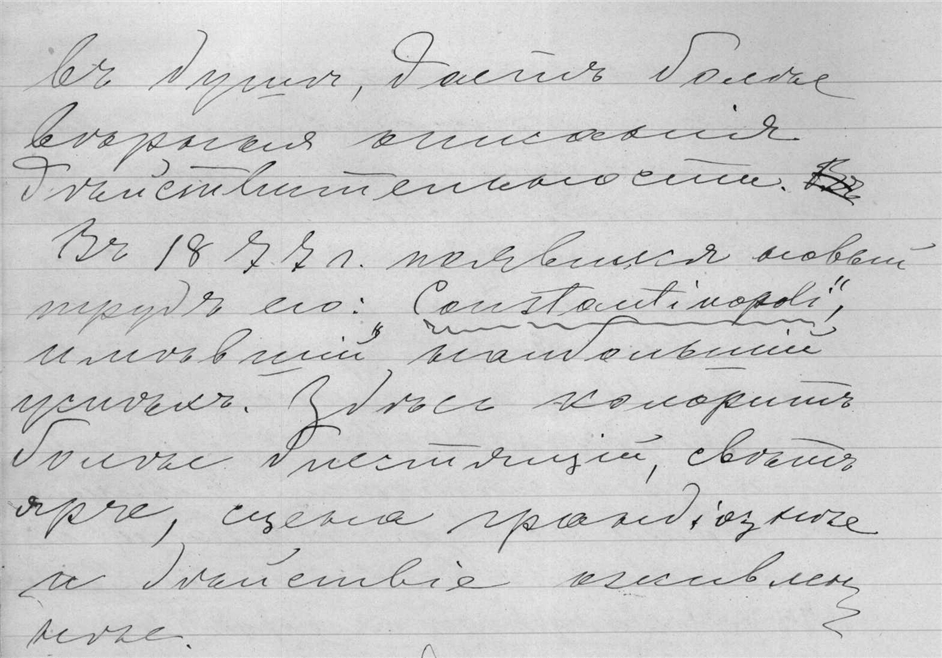 въ душѣ, даетъ болѣе
вѣрныя описанія
дѣйствительности.
Въ 1877 г. появился новый
трудъ его: „Constantinopoli",
имѣвшій наибольшій
успѣхъ. Здѣсь колоритъ
болѣе блестящій, свѣтъ
ярче, сцена грандіознѣе
и дѣйствіе оживлен
нѣе.